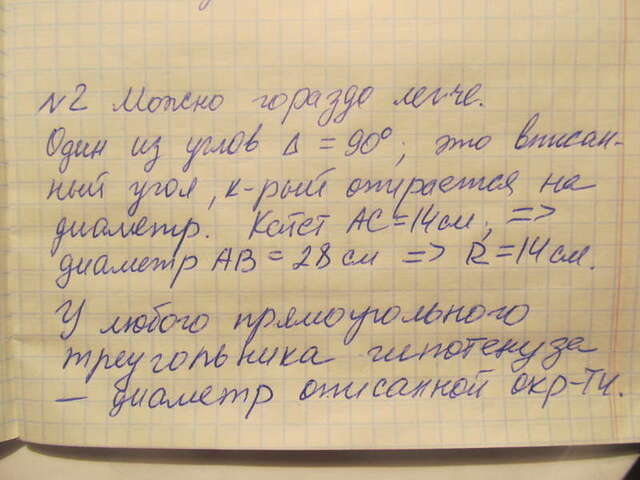 №2 Можно гораздо легче.
Один из углов Δ = 90°; это вписан-
ный угол, к-рый опирается на
диаметр. Катет AC=14см; =>
диаметр AB = 28 см => R=14см.
У любого прямоугольного
треугольника гипотенуза
— диаметр описанной окр-ти.